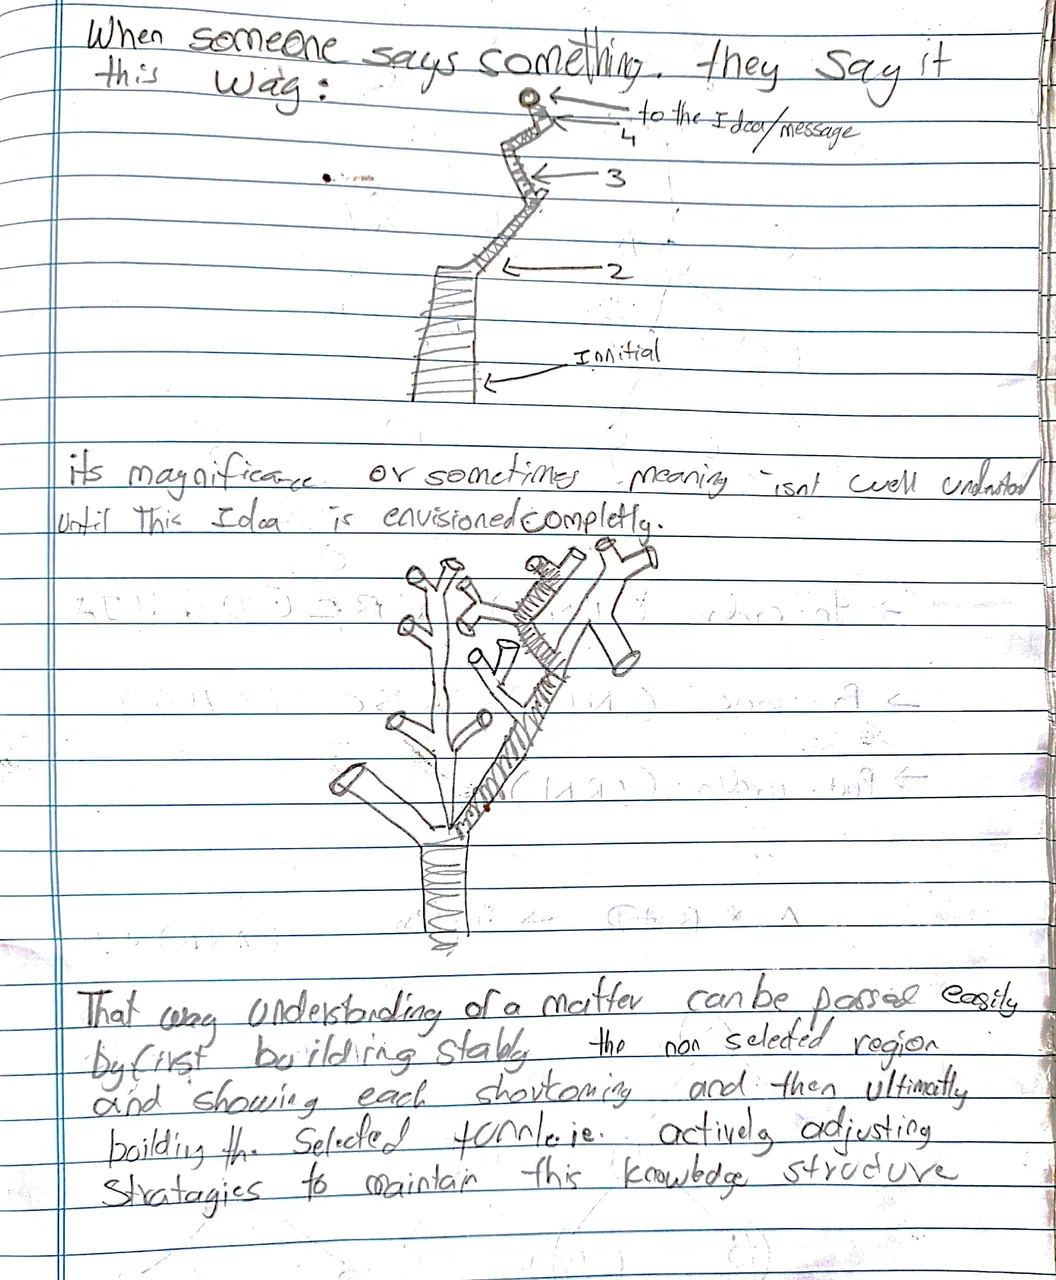 When someone says something. they say it
this way:
to the Idea/message
4
3
2
Innitial
its magnificance or sometimes meaning isnt well understood
until this Idea is envisioned completly.
That way understanding of a matter can be passed easily
by first building stably the non selected region
and showing each shortcoming and then ultimatly
building the selected tunnle.ie. actively adjusting
stratagies to maintain this knowledge structure